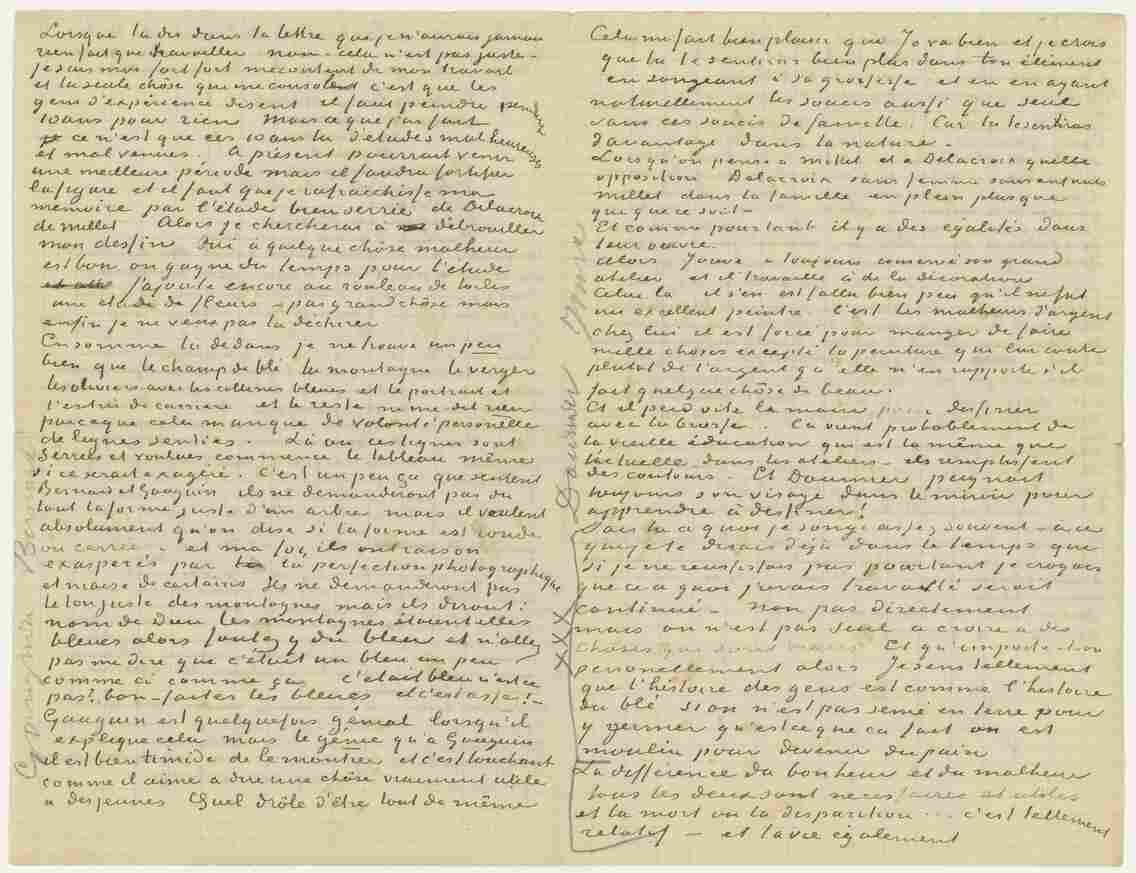 Lorsque tu dis dans ta lettre que je n'aurais jamais
rien fait que travailler non – cela n'est pas juste –
je suis moi fort fort mecontent de mon travail
et la seule chôse qui me console c'est que les
gens d'expérience disent il faut peindre pendant
10 ans pour rien Mais ce que j'ai fait
ce n'est que ces 10 ans la d'études malheureuses
et mal venues. A present pourrait venir
une meilleure période mais il faudra fortifier
la figure et il faut que je rafraichisse ma
mémoire par l'étude bien serrée de Delacroix
de Millet Alors je chercherai à débrouiller
mon dessin Oui à quelque chôse malheur
est bon on gagne du temps pour l'étude
J'ajoute encore au rouleau de toiles
une étude de fleurs – pas grand chôse mais
enfin je ne veux pas la déchirer
En somme la dedans je ne trouve un peu
bien que le champ de blé la montagne le verger
les oliviers avec les collines bleues et le portrait et
l'entrée de carriere et le reste ne me dit rien
parceque cela manque de volonté personelle
de lignes senties. Là où ces lignes sont
serrées et voulues commence le tableau même
si ce serait exagéré. C'est un peu ça que sentent
Bernard et Gauguin ils ne demanderont pas du
tout la forme juste d'un arbre mais ils veulent
absolument qu'on dise si la forme est ronde
ou carrée – et ma foi, ils ont raison
exasperés par la perfection photographique
et niaise de certains Ils ne demanderont pas
le ton juste des montagnes mais ils diront:
nom de Dieu les montagnes étaient elles
bleues alors foutez y du bleu et n'allez
pas me dire que c'était un bleu un peu
comme ci comme ça c'était bleu n'est ce
pas? bon – faites les bleues et c'est assez! –
Gauguin est quelquefois génial lorsqu'il
explique cela mais le génie qu'a Gauguin
il est bien timide de le montrer et c'est touchant
comme il aime a dire une chôse vraiment utile
a des jeunes Quel drôle d'être tout de même
Gauguin Bernard
Cela me fait bien plaisir que Jo va bien et je crois
que tu te sentiras bien plus dans ton élément
en songeant à sa grossesse et en en ayant
naturellement les soucis aussi que seul
sans ces soucis de famille. Car tu te sentiras
d'avantage dans la nature.
Lorsqu'on pense a Millet et a Delacroix quelle
opposition Delacroix sans femme sans enfants
Millet dans la famille en plein plus que
qui que ce soit –
Et comme pourtant il y a des égalités dans
leur œuvre.
Alors Jouve a toujours conservé son grand
atelier et il travaille à de la décoration
Celui la il s'en est fallu bien peu qu'il ne fut
un excellent peintre C'est les malheurs d'argent
chez lui il est forcé pour manger de faire
mille choses excepté la peinture qui lui coute
plutot de l'argent qu'elle n'en rapporte s'il
fait quelque chôse de beau.
Et il perd vite la main pour dessiner
avec la brosse. Ca vient probablement de
la vieille éducation qui est la même que
l'actuelle dans les ateliers – ils remplissent
des contours. Et Daumier peignait
toujours son visage dans le miroir pour
apprendre à dessiner!
Sais tu à quoi je songe assez souvent – à ce
que je te disais déjà dans le temps que
si je ne reussissais pas pourtant je croyais
que ce a quoi j'avais travaillé serait
continué – Non pas directement
mais on n'est pas seul a croire a des
choses que sont vraies Et qu'importe-t-on
personellement alors Je sens tellement
que l'histoire des gens est comme l'histoire
du blé si on n'est pas semé en terre pour
y germer qu'est ce que ca fait on est
moulu pour devenir du pain
La différence du bonheur et du malheur
tous les deux sont necessaires et utiles
et la mort ou la disparition ... c'est tellement
relatif – et la vie également
Daumier Jouve
XXX